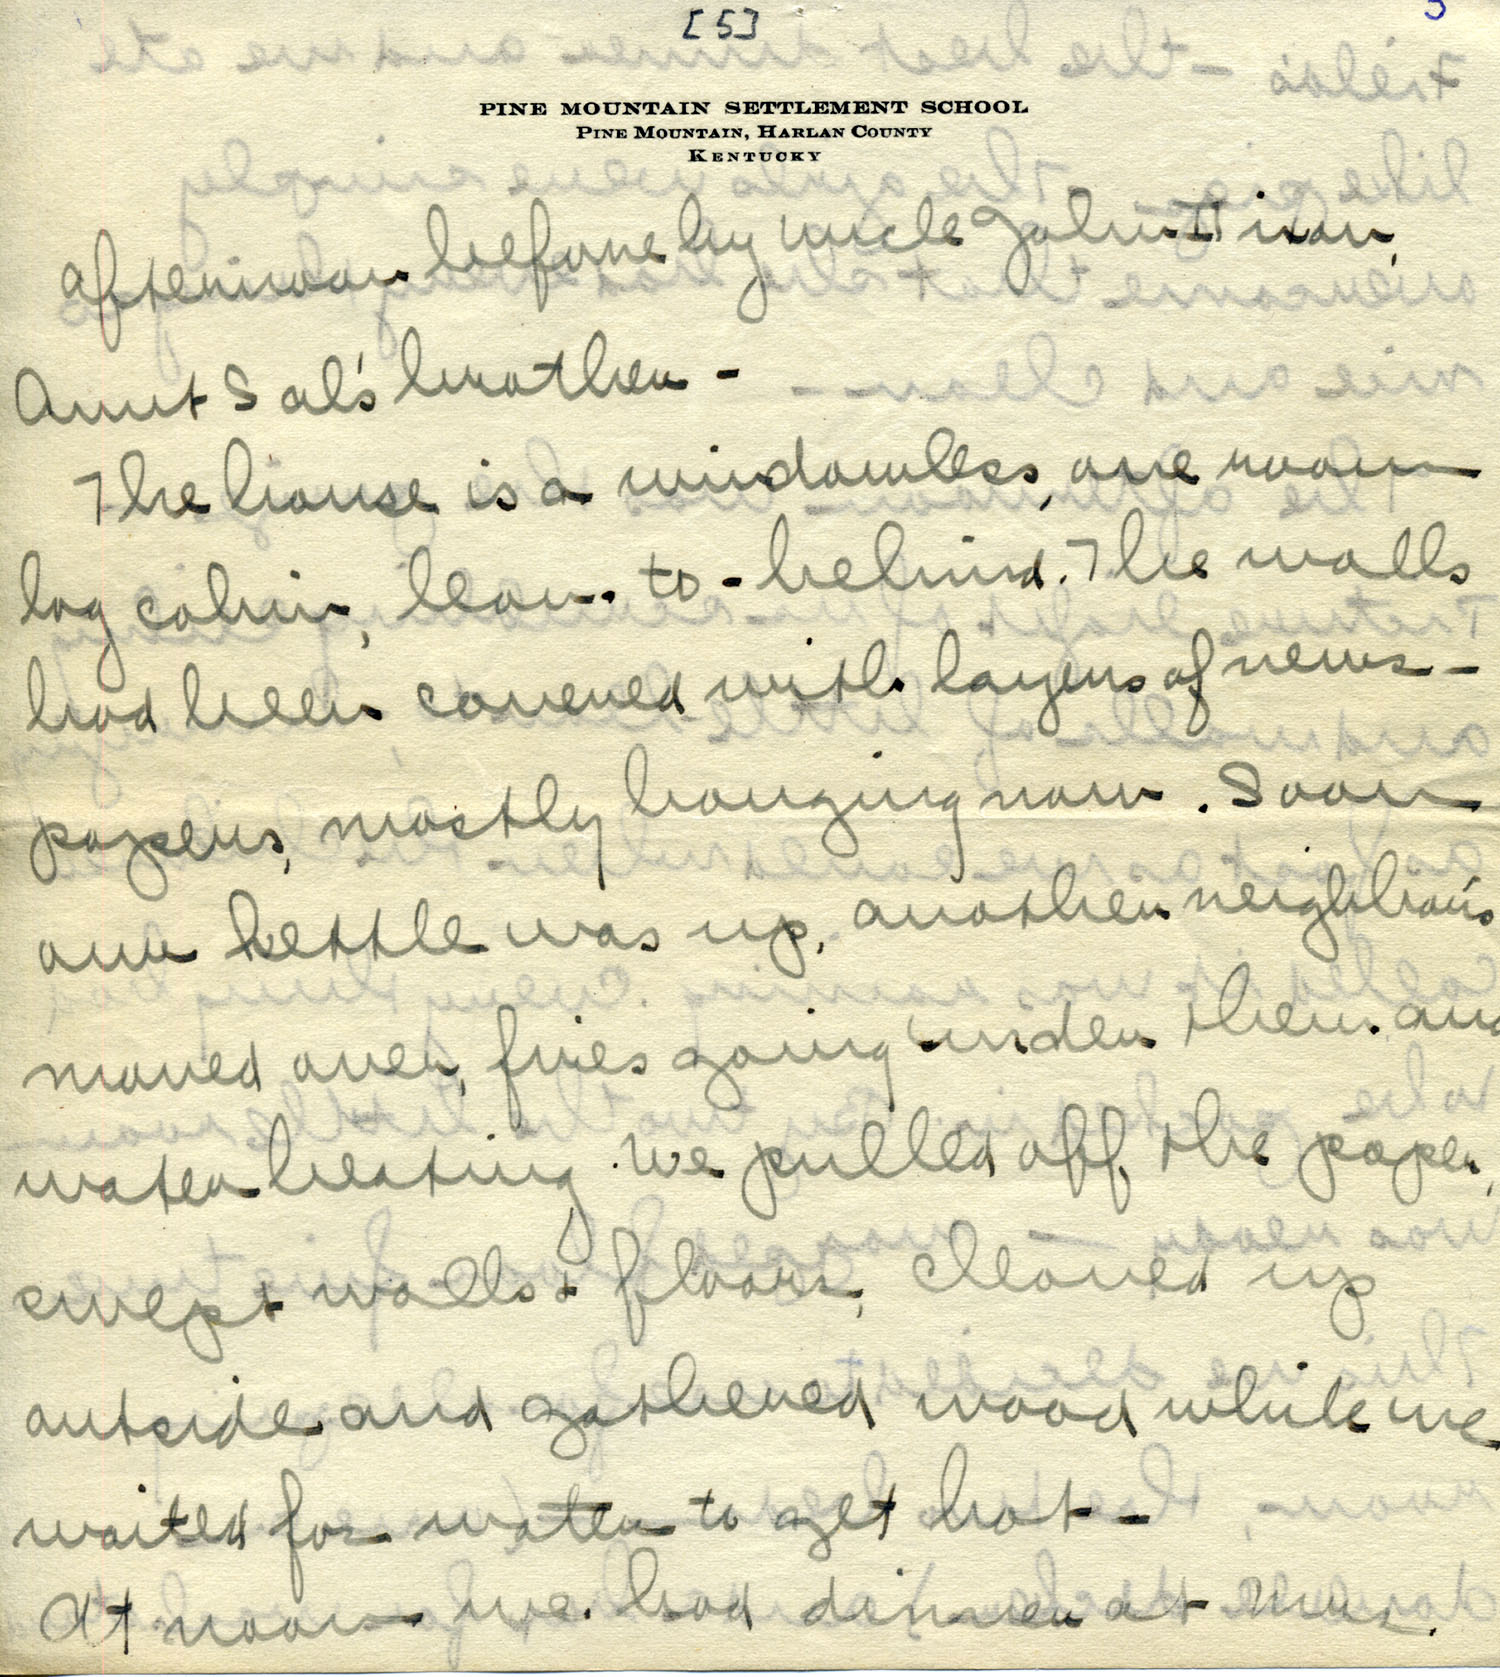 [5]
5
PINE MOUNTAIN SETTLEMENT SCHOOL
PINE MOUNTAIN, HARLAN COUNTY
KENTUCKY
afternoon before by Uncle John
Aunt Sal's brother -
The house is a windowless, one room
log cabin, lean-to-behind. The walls
had been covered with layers of news-
papers, mostly hanging now. Soon
our kettle was up, another neighbor's
moved over, fires going under them and
water heating. We pulled off the paper,
swept walls & floors, cleaned up
outside and gathered wood while we
waited for water to get hot -
At noon we had dinner at Mrs.